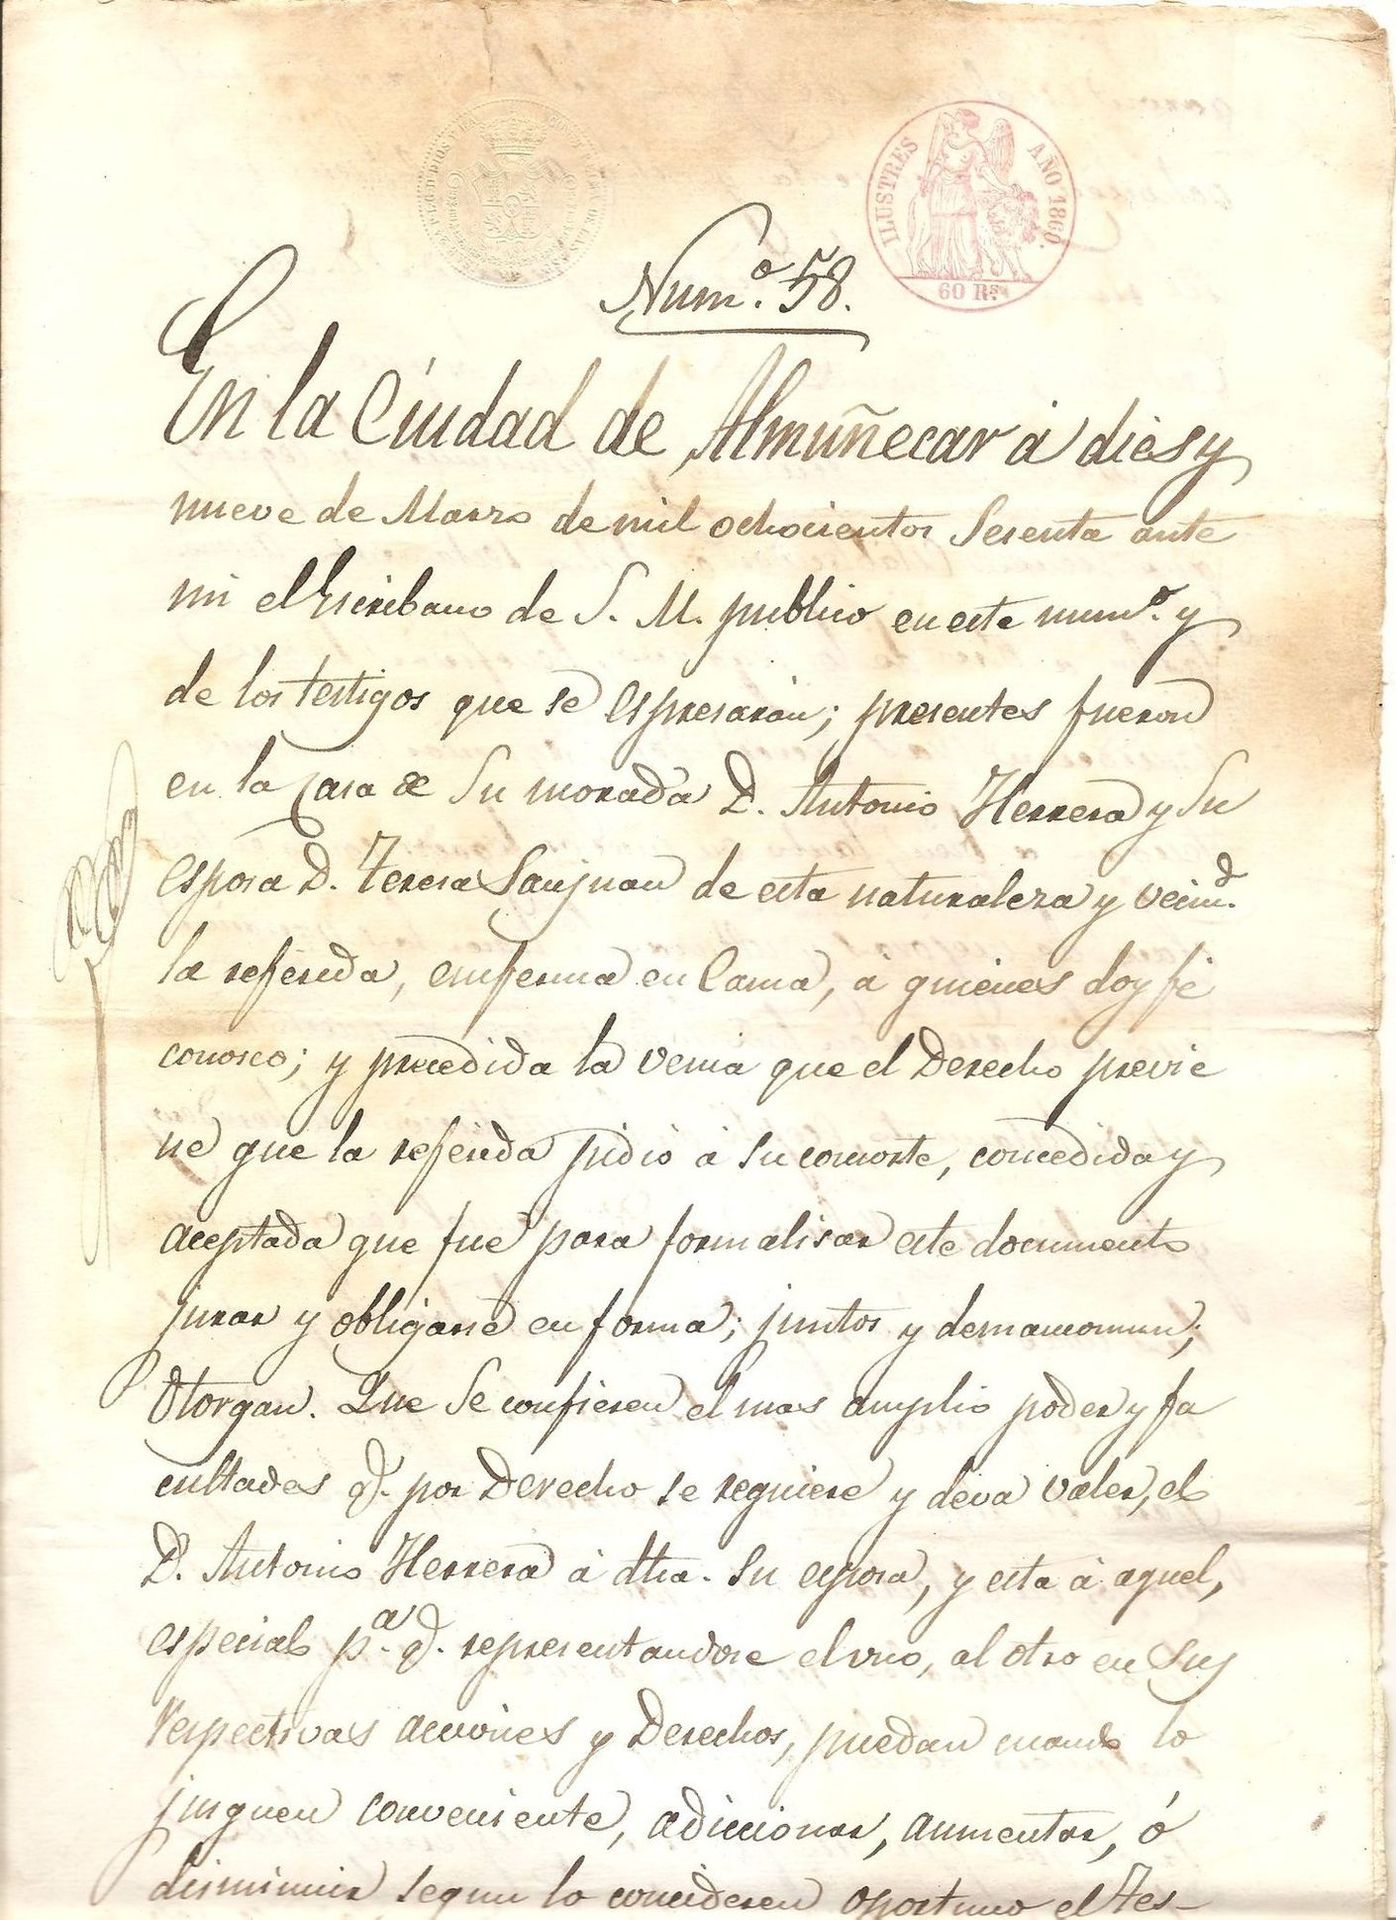 ILUSTRES AÑO 1860.
60 Rs.
Num.º 58.
En la Ciudad de Almuñecar á dies y
nueve de Marzo de mil ochocientos Sesenta ante
mi el Escribano de S. M. publico en este num.º y
de los testigos que se espresarán; presentes fueron
en la Casa de Su morada D. Antonio Herrera y Su
esposa D. Teresa Sanjuan de esta naturaleza y vecind.
la referida, enferma en Cama, á quienes doy fé
conosco; y precedida la venia que el Derecho previe
ne que la referida pidió á Su consorte, concedida y
aceptada que fué para formalisar este documento
jurar y obligarse en forma; juntos y demancomun;
Otorgan. Que Se confieren el mas amplio poder y fa
cultades q. por Derecho se requiere y deva valer, el
D. Antonio Herrera á dha. Su esposa, y esta á aquel,
especial p.ª q. representandose el uno, al otro en Sus
respectivas acciones y Derechos, puedan cuando lo
jusguen conveniente, adiccionar, aumentar, ó
disminuir segun lo concideren oportuno el Tes-